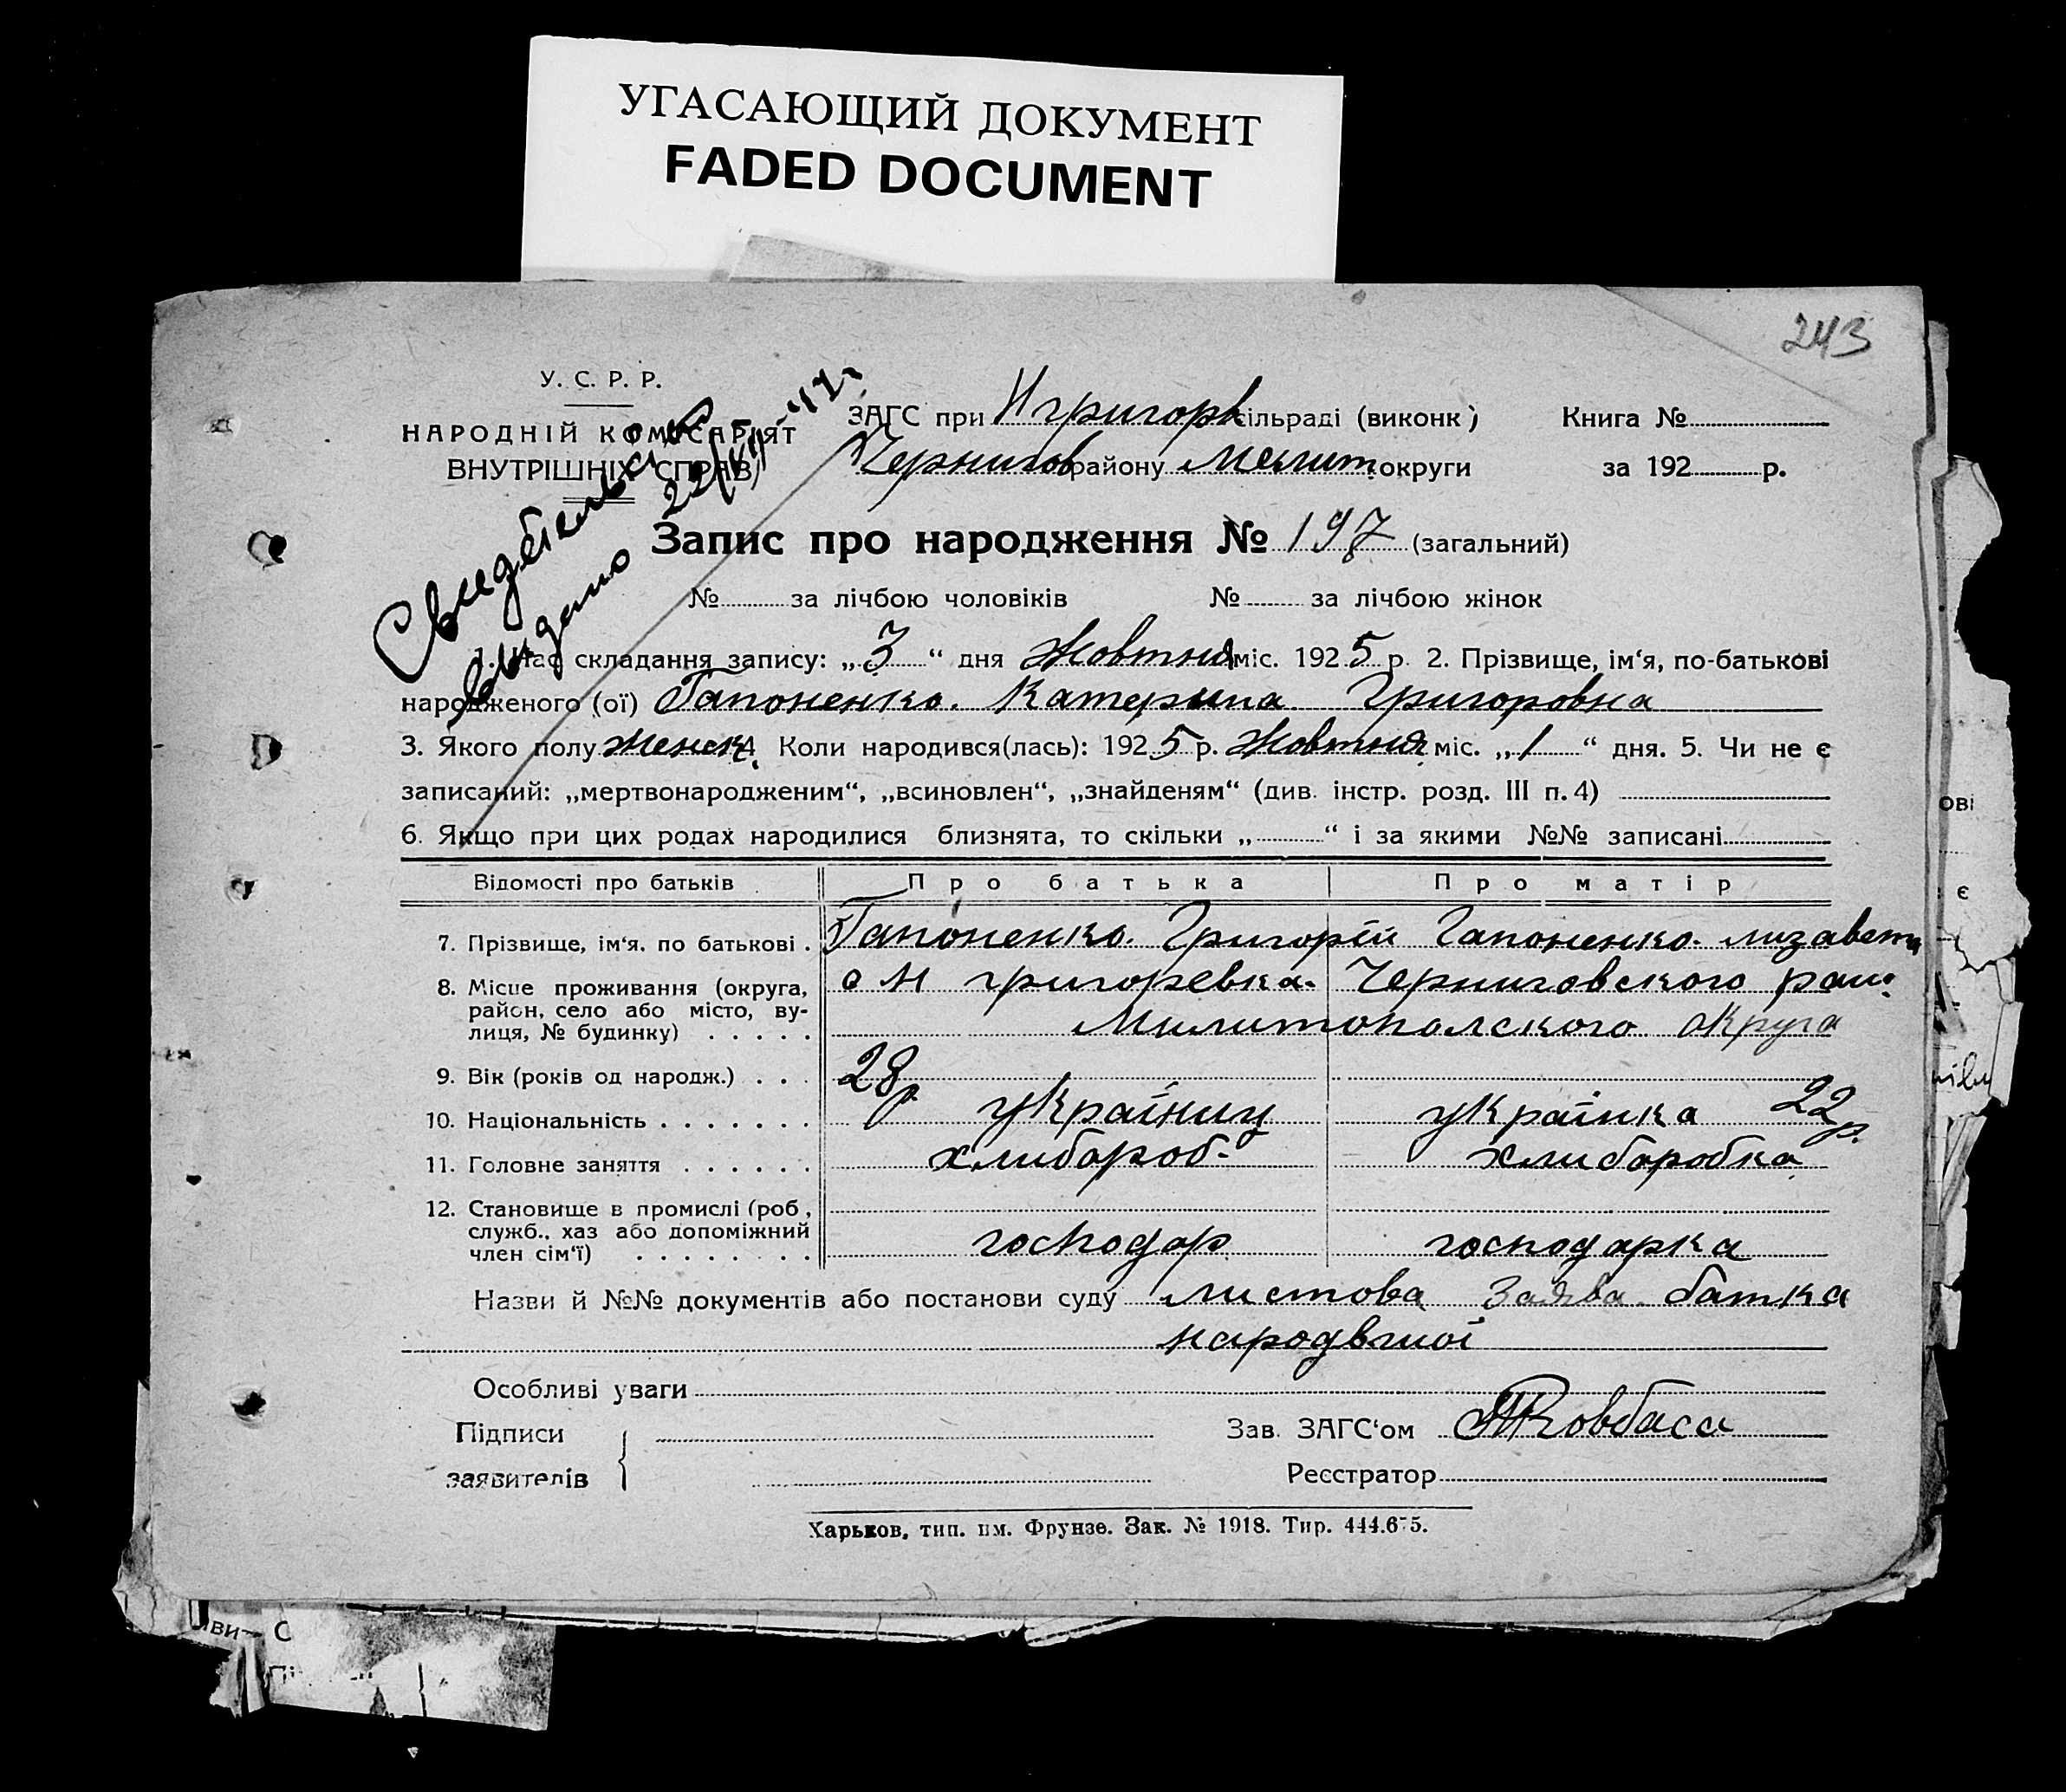 УГАСАЮЩИЙ ДОКУМЕНТ
FADED DOCUMENT
243
У. С. Р. Р.
НАРОДНІЙ КОМІСАРІЯТ
ВНУТРІШНІХ СПРАВ
Свидетельство
выдано 22/VII-47г
ЗАГС при Нгригорв сільраді (виконк) Книга №
Чернигов району Мелит. округи за 192 р.
Запис про народження № 197 (загальний)
№ за лічбою чоловіків № за лічбою жінок
1. Час складання запису: „3“ дня Жовтня міс. 1925 р. 2. Прізвище, ім‘я, по-батькові
народженого (ої) Гапоненко. Катерина Григоровна
3. Якого полу женск. 4 Коли народився(лась): 1925 р. Жовтня міс. „1“ дня. 5. Чи не є
записаний: „мертвонародженим“, „всиновлен“, „знайденям“ (див. інстр. розд. III п. 4)
6. Якщо при цих родах народилися близнята, то скільки „ “ і за якими №№ записані
Відомості про батьків Про батька Про матір
7. Прізвище, ім‘я, по батькові . Гапоненко. Григорій Гапоненко. лизавета
8. Місце проживання (округа, с Н григоревка. Черниговского рай.
район, село або місто, ву-
лиця, № будинку) . . . . . Милитополского округа
9. Вік (років од народж.) . . . 28р 22р.
10. Національність . . . . . . . україниц українка
11. Головне заняття . . . . . . хлибороб. хлиборобка
12. Становище в промислі (роб,
служб., хаз або допоміжний
член сім‘ї) . . . . . . . . господар господарка
Назви й №№ документів або постанови суду листова Заява батка
народвшої
Особливі уваги
Підписи
заявителів
Зав. ЗАГС‘ом Ковбаса
Реєстратор
Харьков, тип. им. Фрунзе. Зак. № 1918. Тир. 444.675.
ові
є